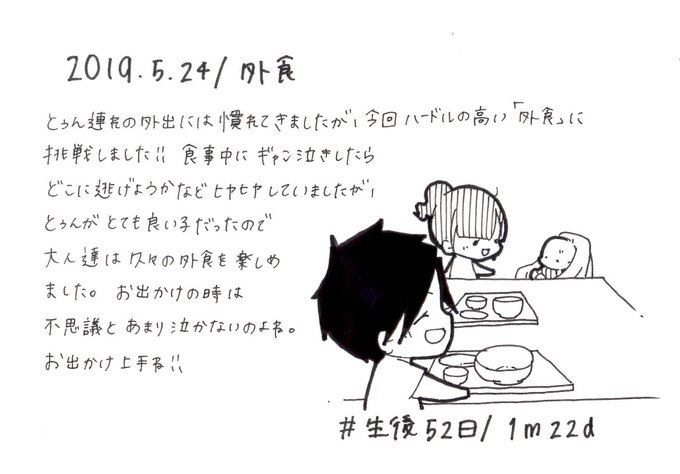 2019.5.24/外食
とぅん連れの外出には慣れてきましたが、今回ハードルの高い「外食」に
挑戦しました!! 食事中にギャン泣きしたら
どこに逃げようかなどヒヤヒヤしていましたが、
とぅんがとても良い子だったので
大人達は久々の外食を楽しめ
ました。 お出かけの時は
不思議とあまり泣かないのよね。
お出かけ上手ね!!
#生後52日/1m22d